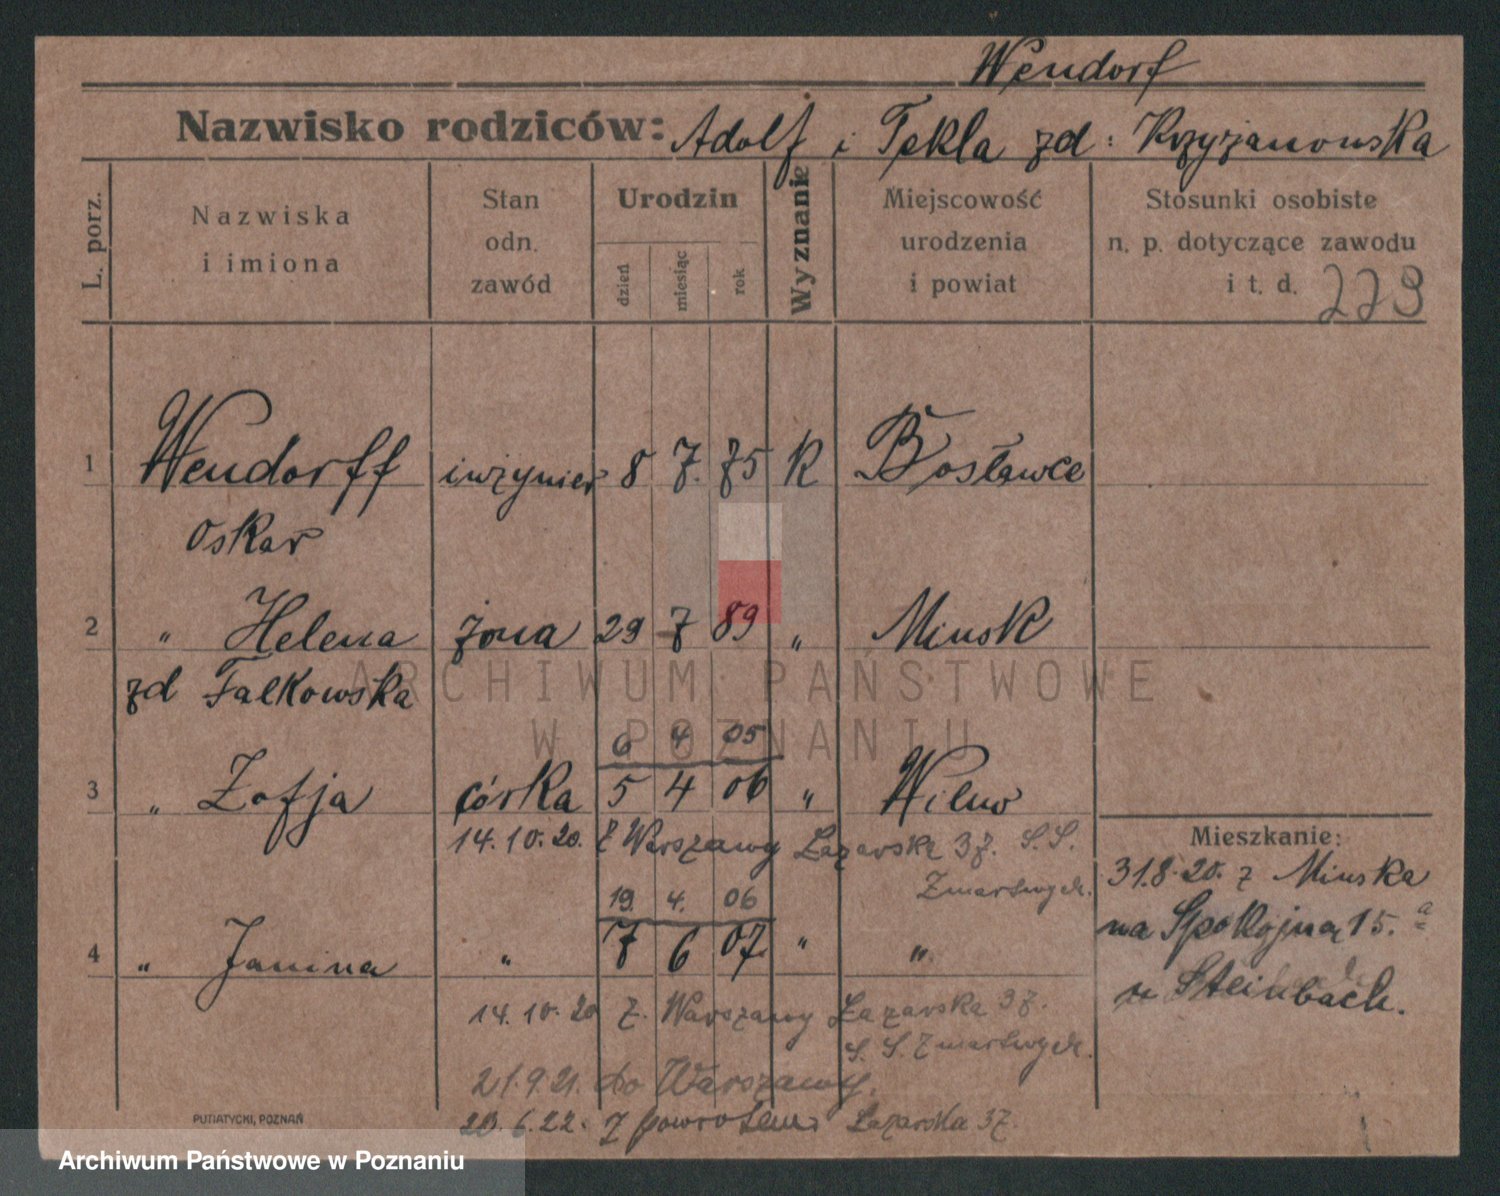 Wendorf
Nazwisko rodziców: Adolf i Tekla zd: Krzyżanowska
L. porz.
Nazwiska i imiona
Stan odn. zawód
Urodzin
dzień miesiąc rok
Wyznanie
Miejscowość urodzenia i powiat
Stosunki osobiste n. p. dotyczące zawodu i t. d.
223
1 Wendorff inżynier 8 7. 75 K Bosławce
Oskar
2 " Helena żona 29 7 89 " Minsk
zd Falkowska
6 4 05
3 " Zofja córka 5 4 06 " Wilno
14.10.20. Z Warszawy Łazarska 37. S.S.
Zmartwych.
19. 4. 06
4 " Janina " 7 6 07. " "
14.10.20 Z. Warszawy Łazarska 37.
S. S. Zmartwych.
21.9.21. do Warszawy.
23.6.22. Z powrotem Łazarska 37.
Mieszkanie:
31.8.20. z Minska
na Spokojną 15.a
u Steinbach.
PUTIATYCKI, POZNAŃ
ARCHIWUM PAŃSTWOWE
W POZNANIU
Archiwum Państwowe w Poznaniu